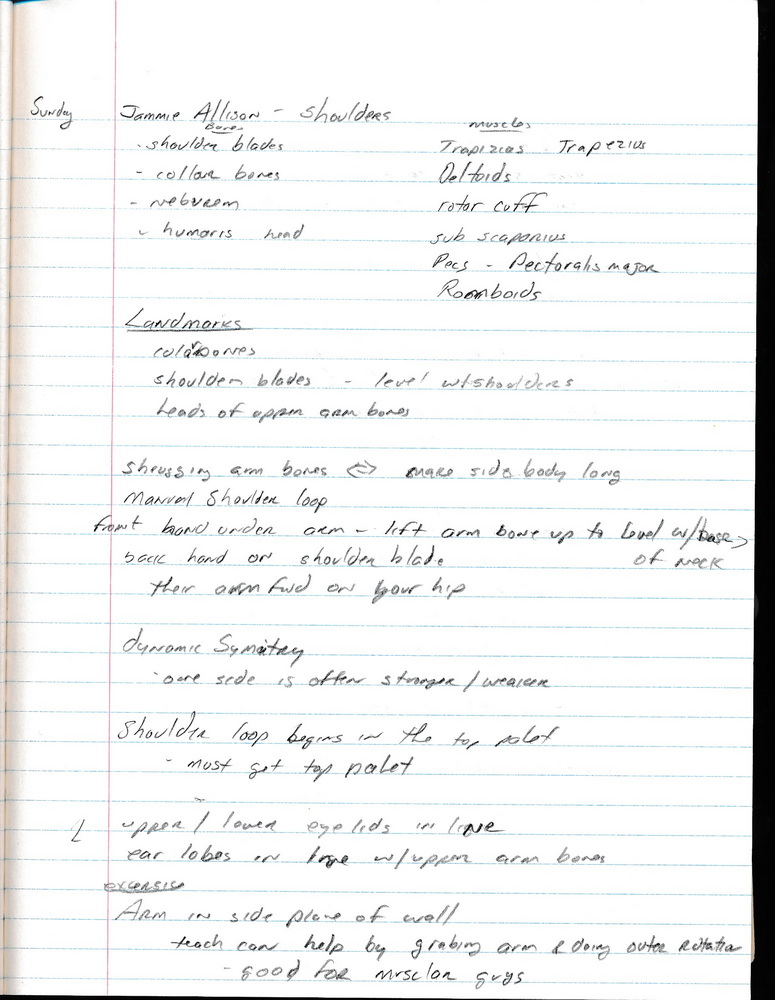 Sunday Jammie Allison - Shoulders
Bones muscles
- shoulder blades Trapizeas Trapezius
- collar bones Deltoids
- rotor cuff
- humoris head sub scaparius
Pecs - Pectoralis major
Romboids
Landmarks
colarbones
shoulder blades - level w/shoulders
heads of upper arm bones
shrugging arm bones <=> make side body long
Manual Shoulder loop
front hand under arm - lift arm bone up to level w/base >
back hand on shoulder blade of neck
their arm fwd on your hip
dynamic Symmitry
- one side is often stronger / weaker
Shoulder loop begins in the top palet
- must get top palet
upper / lower eye lids in line
ear lobes in line w/upper arm bones
excersise
Arm in side plane of wall
teach can help by grabing arm & doing outer rotation
- good for musclar guys